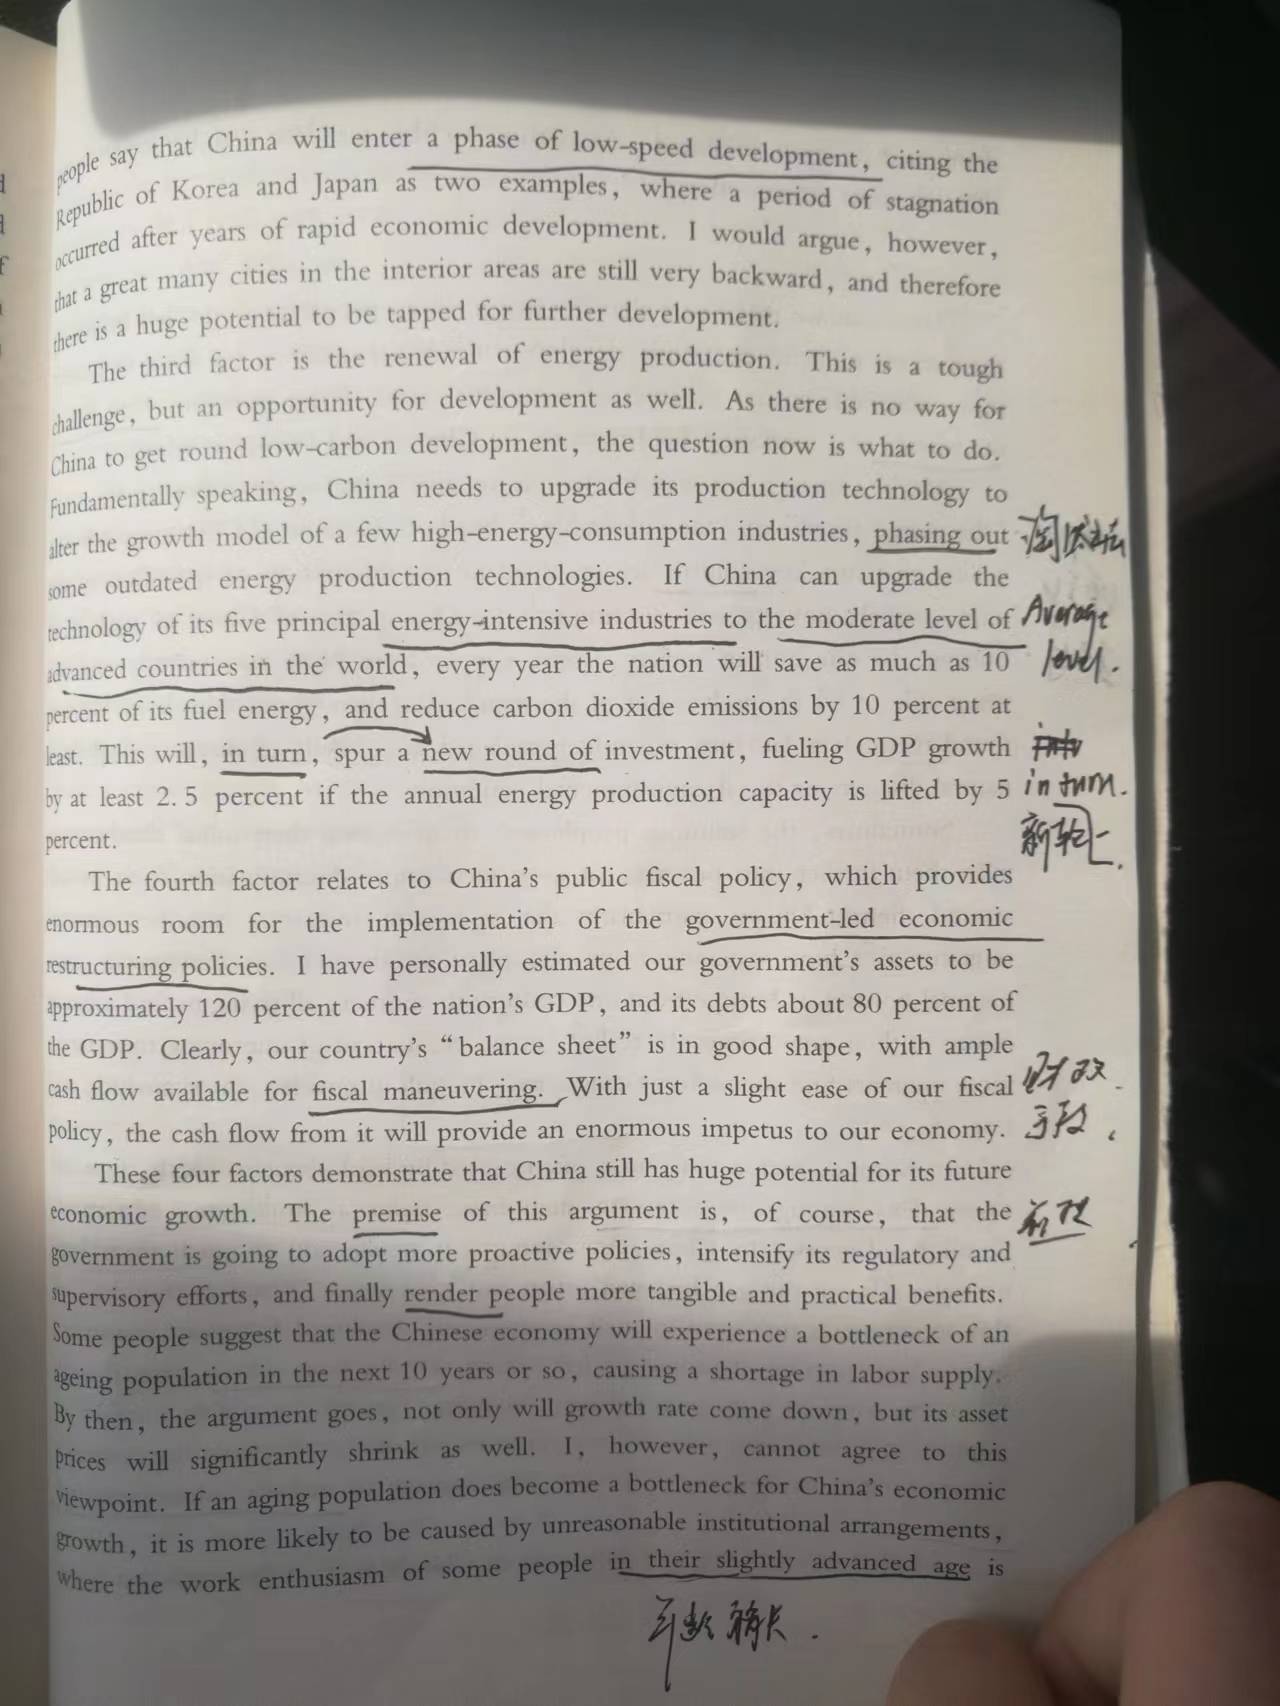 people say that China will enter a phase of low-speed development, citing the
Republic of Korea and Japan as two examples, where a period of stagnation
occurred after years of rapid economic development. I would argue, however,
that a great many cities in the interior areas are still very backward, and therefore
there is a huge potential to be tapped for further development.
The third factor is the renewal of energy production. This is a tough
challenge, but an opportunity for development as well. As there is no way for
China to get round low-carbon development, the question now is what to do.
Fundamentally speaking, China needs to upgrade its production technology to
alter the growth model of a few high-energy-consumption industries, phasing out
some outdated energy production technologies. If China can upgrade the
technology of its five principal energy-intensive industries to the moderate level of Average
advanced countries in the world, every year the nation will save as much as 10 level.
percent of its fuel energy, and reduce carbon dioxide emissions by 10 percent at
least. This will, in turn, spur a new round of investment, fueling GDP growth
by at least 2.5 percent if the annual energy production capacity is lifted by 5 in turn.
percent. 新一轮
The fourth factor relates to China's public fiscal policy, which provides
enormous room for the implementation of the government-led economic
restructuring policies. I have personally estimated our government's assets to be
approximately 120 percent of the nation's GDP, and its debts about 80 percent of
the GDP. Clearly, our country's “balance sheet” is in good shape, with ample
cash flow available for fiscal maneuvering. With just a slight ease of our fiscal 财政
policy, the cash flow from it will provide an enormous impetus to our economy. 手段.
These four factors demonstrate that China still has huge potential for its future
economic growth. The premise of this argument is, of course, that the 前提
government is going to adopt more proactive policies, intensify its regulatory and
supervisory efforts, and finally render people more tangible and practical benefits.
Some people suggest that the Chinese economy will experience a bottleneck of an
ageing population in the next 10 years or so, causing a shortage in labor supply.
By then, the argument goes, not only will growth rate come down, but its asset
prices will significantly shrink as well. I, however, cannot agree to this
viewpoint. If an aging population does become a bottleneck for China's economic
growth, it is more likely to be caused by unreasonable institutional arrangements,
where the work enthusiasm of some people in their slightly advanced age is
年龄稍长.